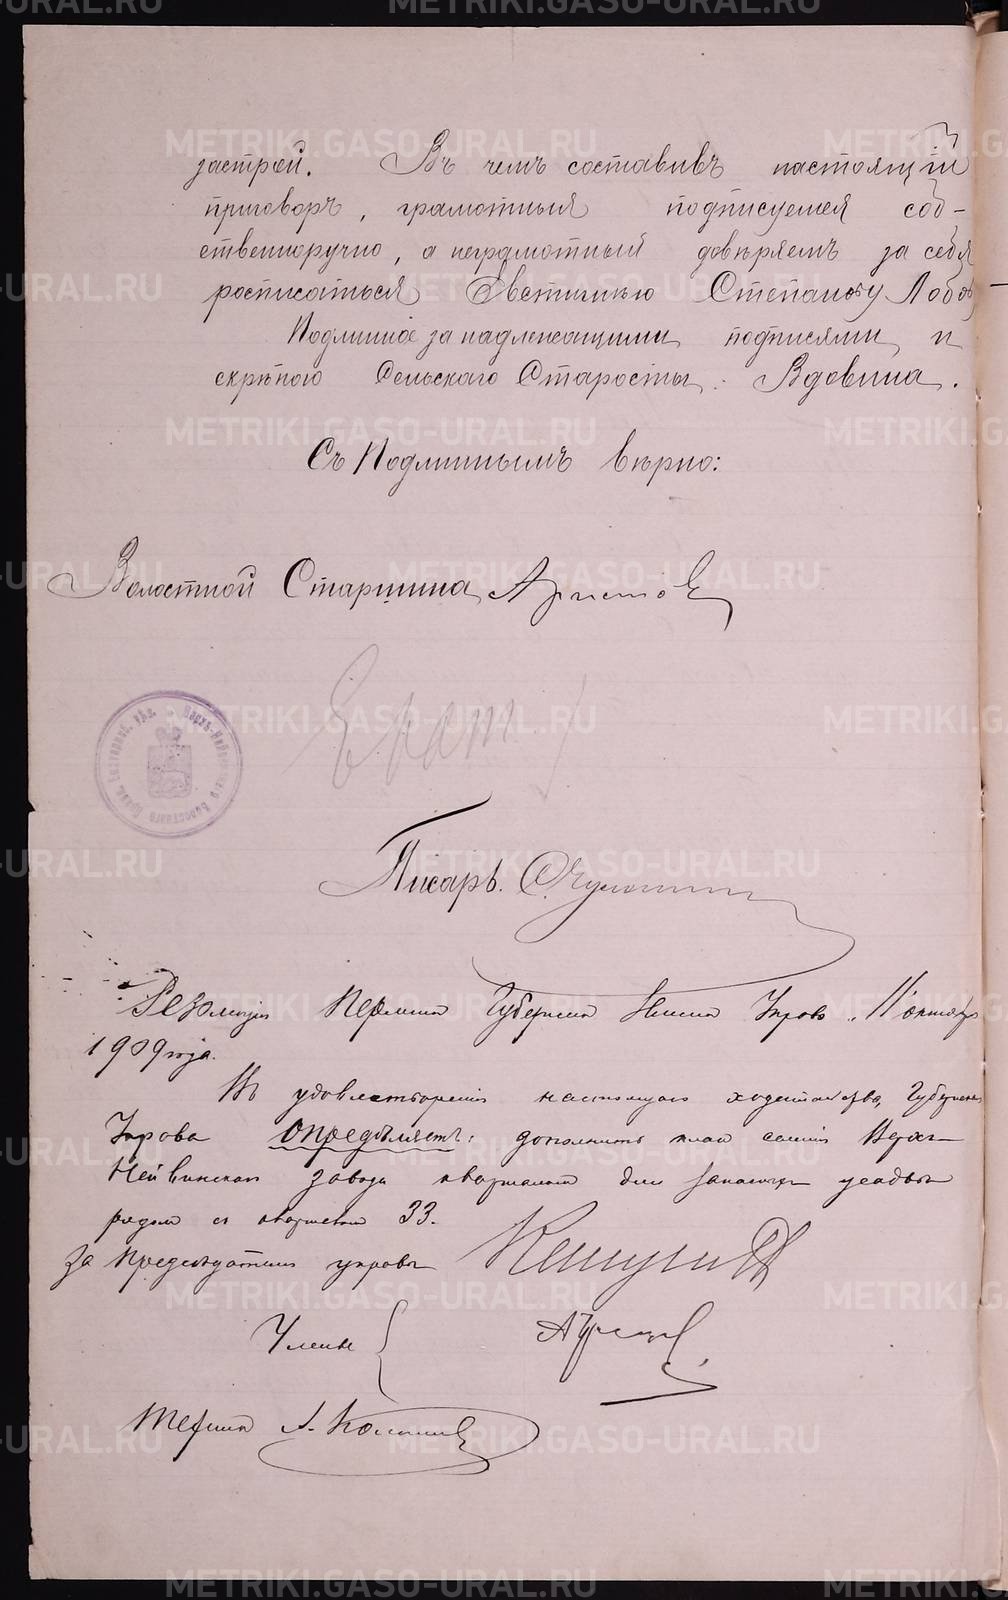 застрой. Въ чемъ составивъ настоящій
приговоръ, грамотныя подписуемся соб-
ственноручно, а неграмотныя довѣряемъ за себя
росписаться Евстигнѣю Степанову Лобов
Подлинное за надлежащими подписями и
скрѣпою Сельскаго Старосты Вдовина.
Съ Подлиннымъ вѣрно:
Волостной Старшина Аристов
Писарь. С.
Резолюція Пермской Губернской Земской Управы, 11 октября
1909 года.
Въ удовлетвореніи настоящаго ходатайства, Губернская
Управа опредѣляетъ: дополнить планъ селенія Верхъ-
Нейвинскаго завода кварталомъ для запасныхъ усадьбъ
рядом съ кварталом 33.
За Предсѣдателя управы
Члены
А.
METRIKI.GASO-URAL.RU